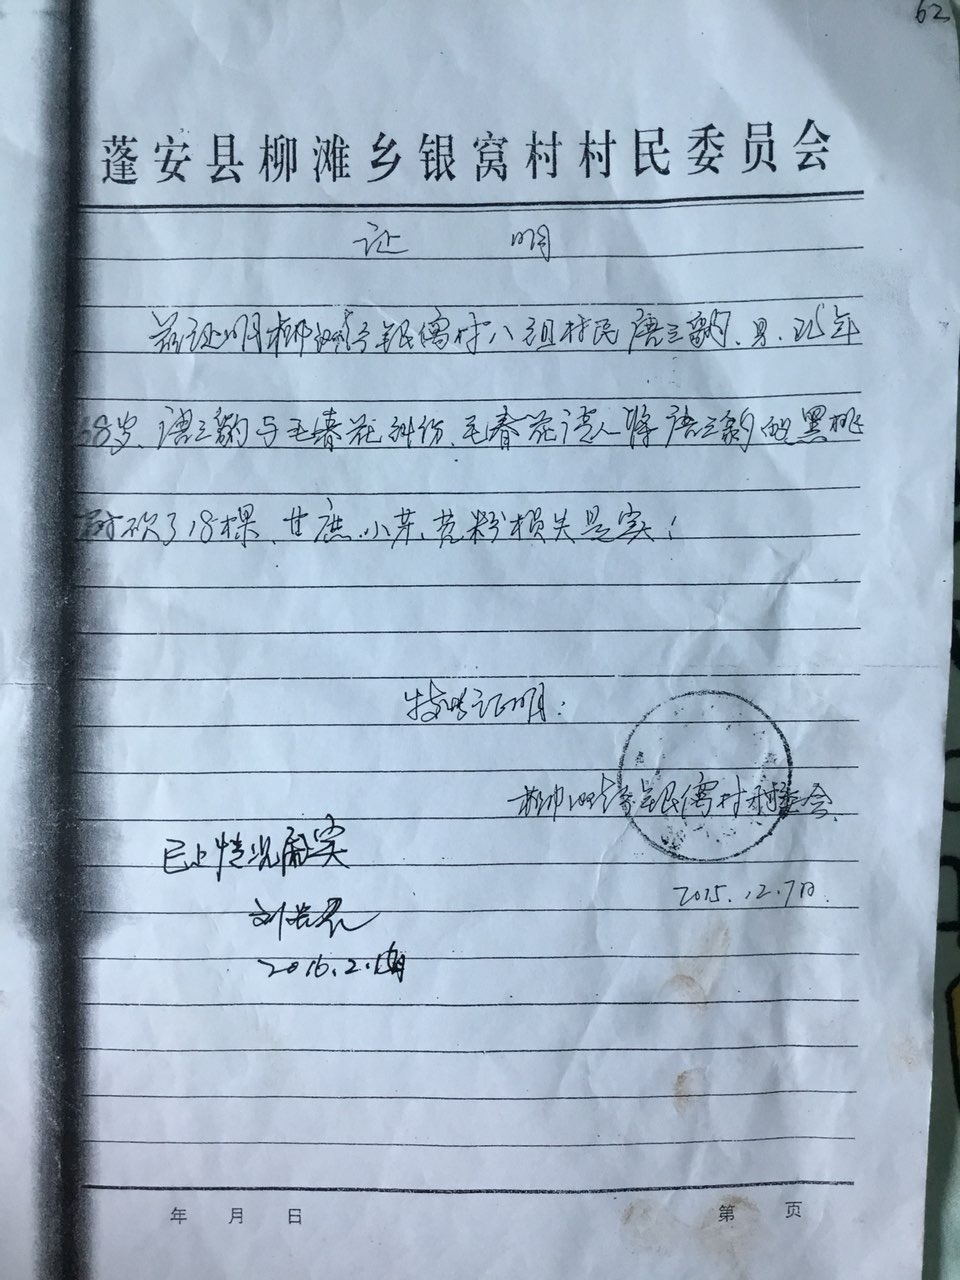 62
蓬安县柳滩乡银窝村村民委员会
证 明
兹证明柳滩乡银窝村八组村民唐三豹、男、现年
68岁、唐三豹与毛春花纠纷、毛春花请人将唐三豹的黑桃
树砍了18棵、甘庶、小芽、苕粉损失是实！
特此证明：
柳滩乡银窝村村委会
2015.12.7日.
已上情况属实
刘
2016.2.
年 月 日 第 页